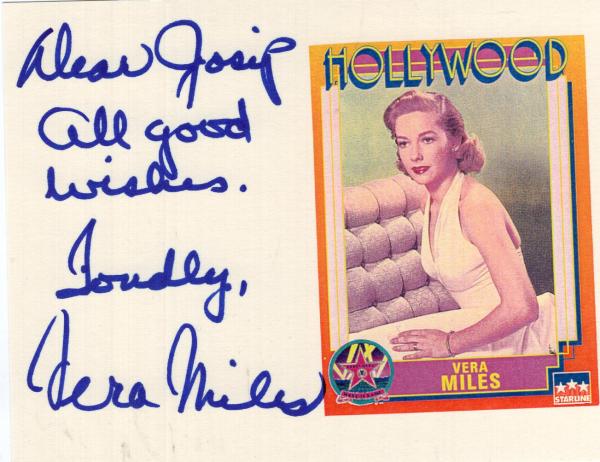 Dear Josip
All good
wishes.
Fondly,
Vera Miles
HOLLYWOOD
VERA
MILES
STARLINE